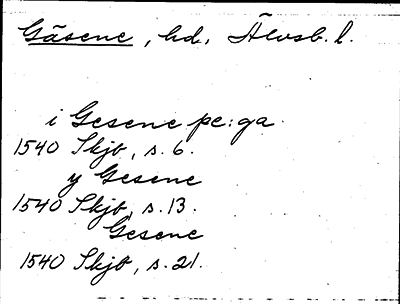 Gäsene, hd, Älvsb. l.
i Gesene pe:ga
1540 Skjb, s. 6.
y Gesene
1540 Skjb, s. 13.
Gesene
1540 Skjb, s. 21.